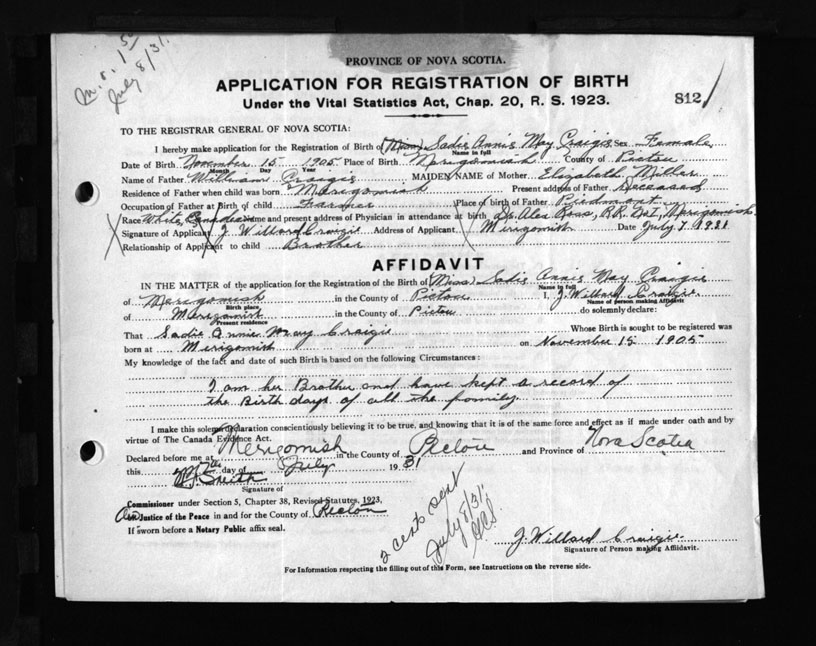 M.O. 15¢
July 8/31.
PROVINCE OF NOVA SCOTIA.
APPLICATION FOR REGISTRATION OF BIRTH
Under the Vital Statistics Act, Chap. 20, R. S. 1923.
812
TO THE REGISTRAR GENERAL OF NOVA SCOTIA:
I hereby make application for the Registration of Birth of (Miss) Sadie Annie May Craigie Sex Female
Name in full
Date of Birth November 15 1905 Place of Birth Merigomish County of Pictou
Month Day Year
Name of Father William Craigie MAIDEN NAME of Mother Elizabeth Miller
Residence of Father when child was born Merigomish Present address of Father Deceased
Occupation of Father at Birth of child Farmer Place of birth of Father Piedmont
Race White, Canadian Name and present address of Physician in attendance at birth Dr. Alex Ross, R.R. No1, Merigomish
Signature of Applicant J. Willard Craigie Address of Applicant Merigomish Date July 7 1931
Relationship of Applicant to child Brother
AFFIDAVIT
IN THE MATTER of the application for the Registration of the Birth of (Miss) Sadie Annie May Craigie
Name in full
of Merigomish in the County of Pictou I, J. Willard Craigie
Birth place Name of person making Affidavit
of Merigomish in the County of Pictou do solemnly declare:
Present residence
That Sadie Annie May Craigie Whose Birth is sought to be registered was
born at Merigomish on November 15 1905
My knowledge of the fact and date of such Birth is based on the following Circumstances:
I am her Brother and have kept a record of
the Birth days of all the family.
I make this solemn declaration conscientiously believing it to be true, and knowing that it is of the same force and effect as if made under oath and by
virtue of The Canada Evidence Act.
Declared before me at Merigomish in the County of Pictou and Province of Nova Scotia
this 7th day of July 1931
Smith
Signature of
Commissioner under Section 5, Chapter 38, Revised Statutes, 1923,
or Justice of the Peace in and for the County of Pictou
If sworn before a Notary Public affix seal.
2 cents sent
July 8/31.
J. Willard Craigie
Signature of Person making Affidavit.
For Information respecting the filling out of this Form, see Instructions on the reverse side.